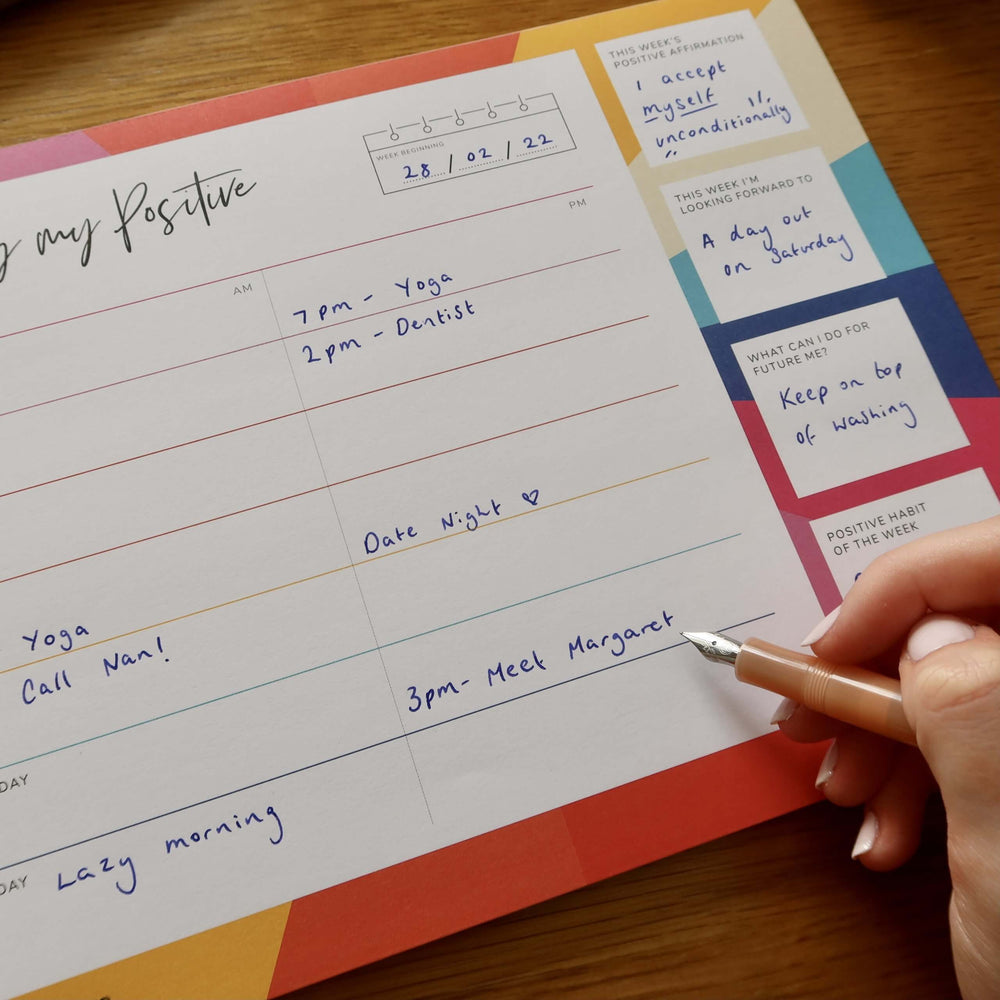 my Positive
WEEK BEGINNING
28 / 02 / 22
AM
PM
7pm - Yoga
2pm - Dentist
Date Night ♡
Yoga
Call Nan!
3pm - Meet Margaret
DAY
DAY
Lazy morning
THIS WEEK'S
POSITIVE AFFIRMATION
I accept
myself
unconditionally
THIS WEEK I'M
LOOKING FORWARD TO
A day out
on Saturday
WHAT CAN I DO FOR
FUTURE ME?
Keep on top
of washing
POSITIVE HABIT
OF THE WEEK